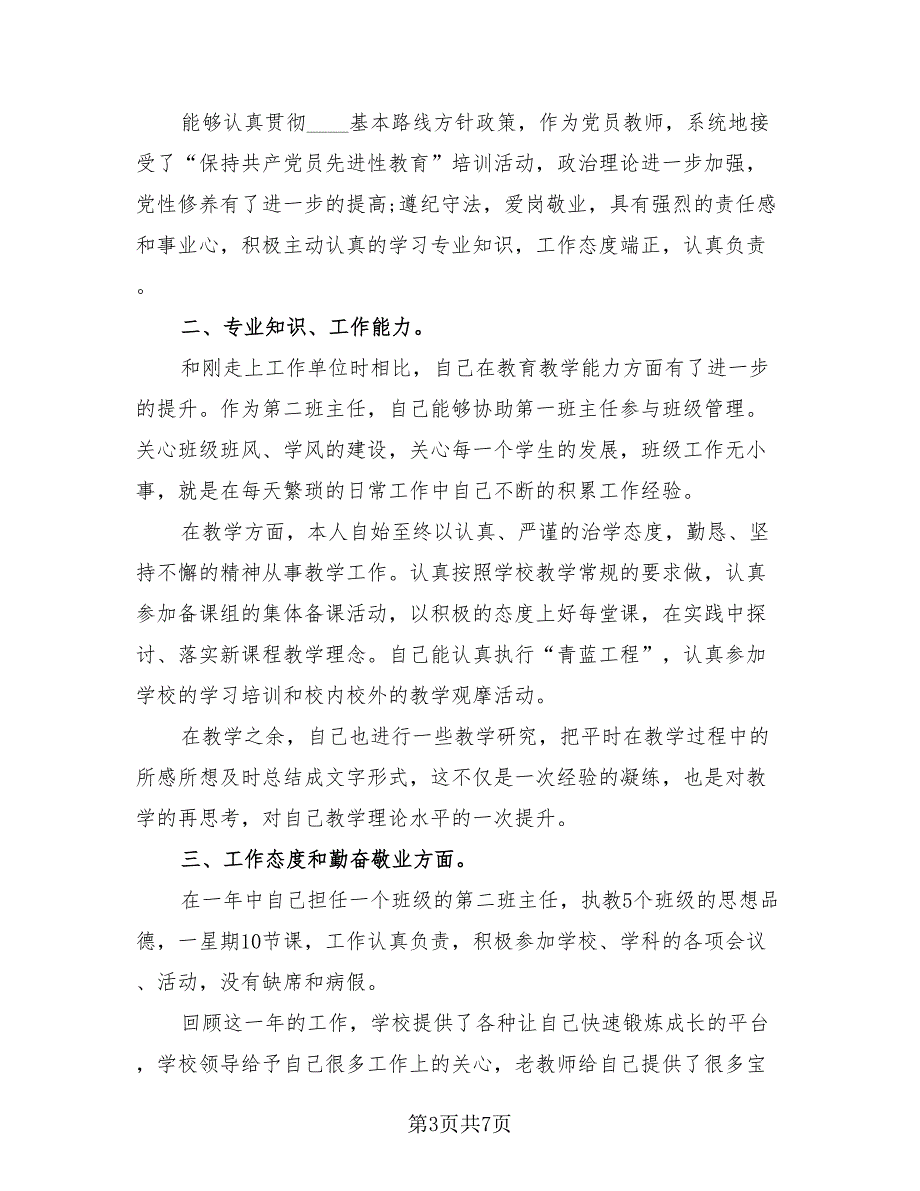 能够认真贯彻____基本路线方针政策，作为党员教师，系统地接
受了“保持共产党员先进性教育”培训活动，政治理论进一步加强，
党性修养有了进一步的提高;遵纪守法，爱岗敬业，具有强烈的责任感
和事业心，积极主动认真的学习专业知识，工作态度端正，认真负责
。
二、专业知识、工作能力。
和刚走上工作单位时相比，自己在教育教学能力方面有了进一步
的提升。作为第二班主任，自己能够协助第一班主任参与班级管理。
关心班级班风、学风的建设，关心每一个学生的发展，班级工作无小
事，就是在每天繁琐的日常工作中自己不断的积累工作经验。
在教学方面，本人自始至终以认真、严谨的治学态度，勤恳、坚
持不懈的精神从事教学工作。认真按照学校教学常规的要求做，认真
参加备课组的集体备课活动，以积极的态度上好每堂课，在实践中探
讨、落实新课程教学理念。自己能认真执行“青蓝工程”，认真参加
学校的学习培训和校内校外的教学观摩活动。
在教学之余，自己也进行一些教学研究，把平时在教学过程中的
所感所想及时总结成文字形式，这不仅是一次经验的凝练，也是对教
学的再思考，对自己教学理论水平的一次提升。
三、工作态度和勤奋敬业方面。
在一年中自己担任一个班级的第二班主任，执教5个班级的思想品
德，一星期10节课，工作认真负责，积极参加学校、学科的各项会议
、活动，没有缺席和病假。
回顾这一年的工作，学校提供了各种让自己快速锻炼成长的平台
，学校领导给予自己很多工作上的关心，老教师给自己提供了很多宝
第3页共7页